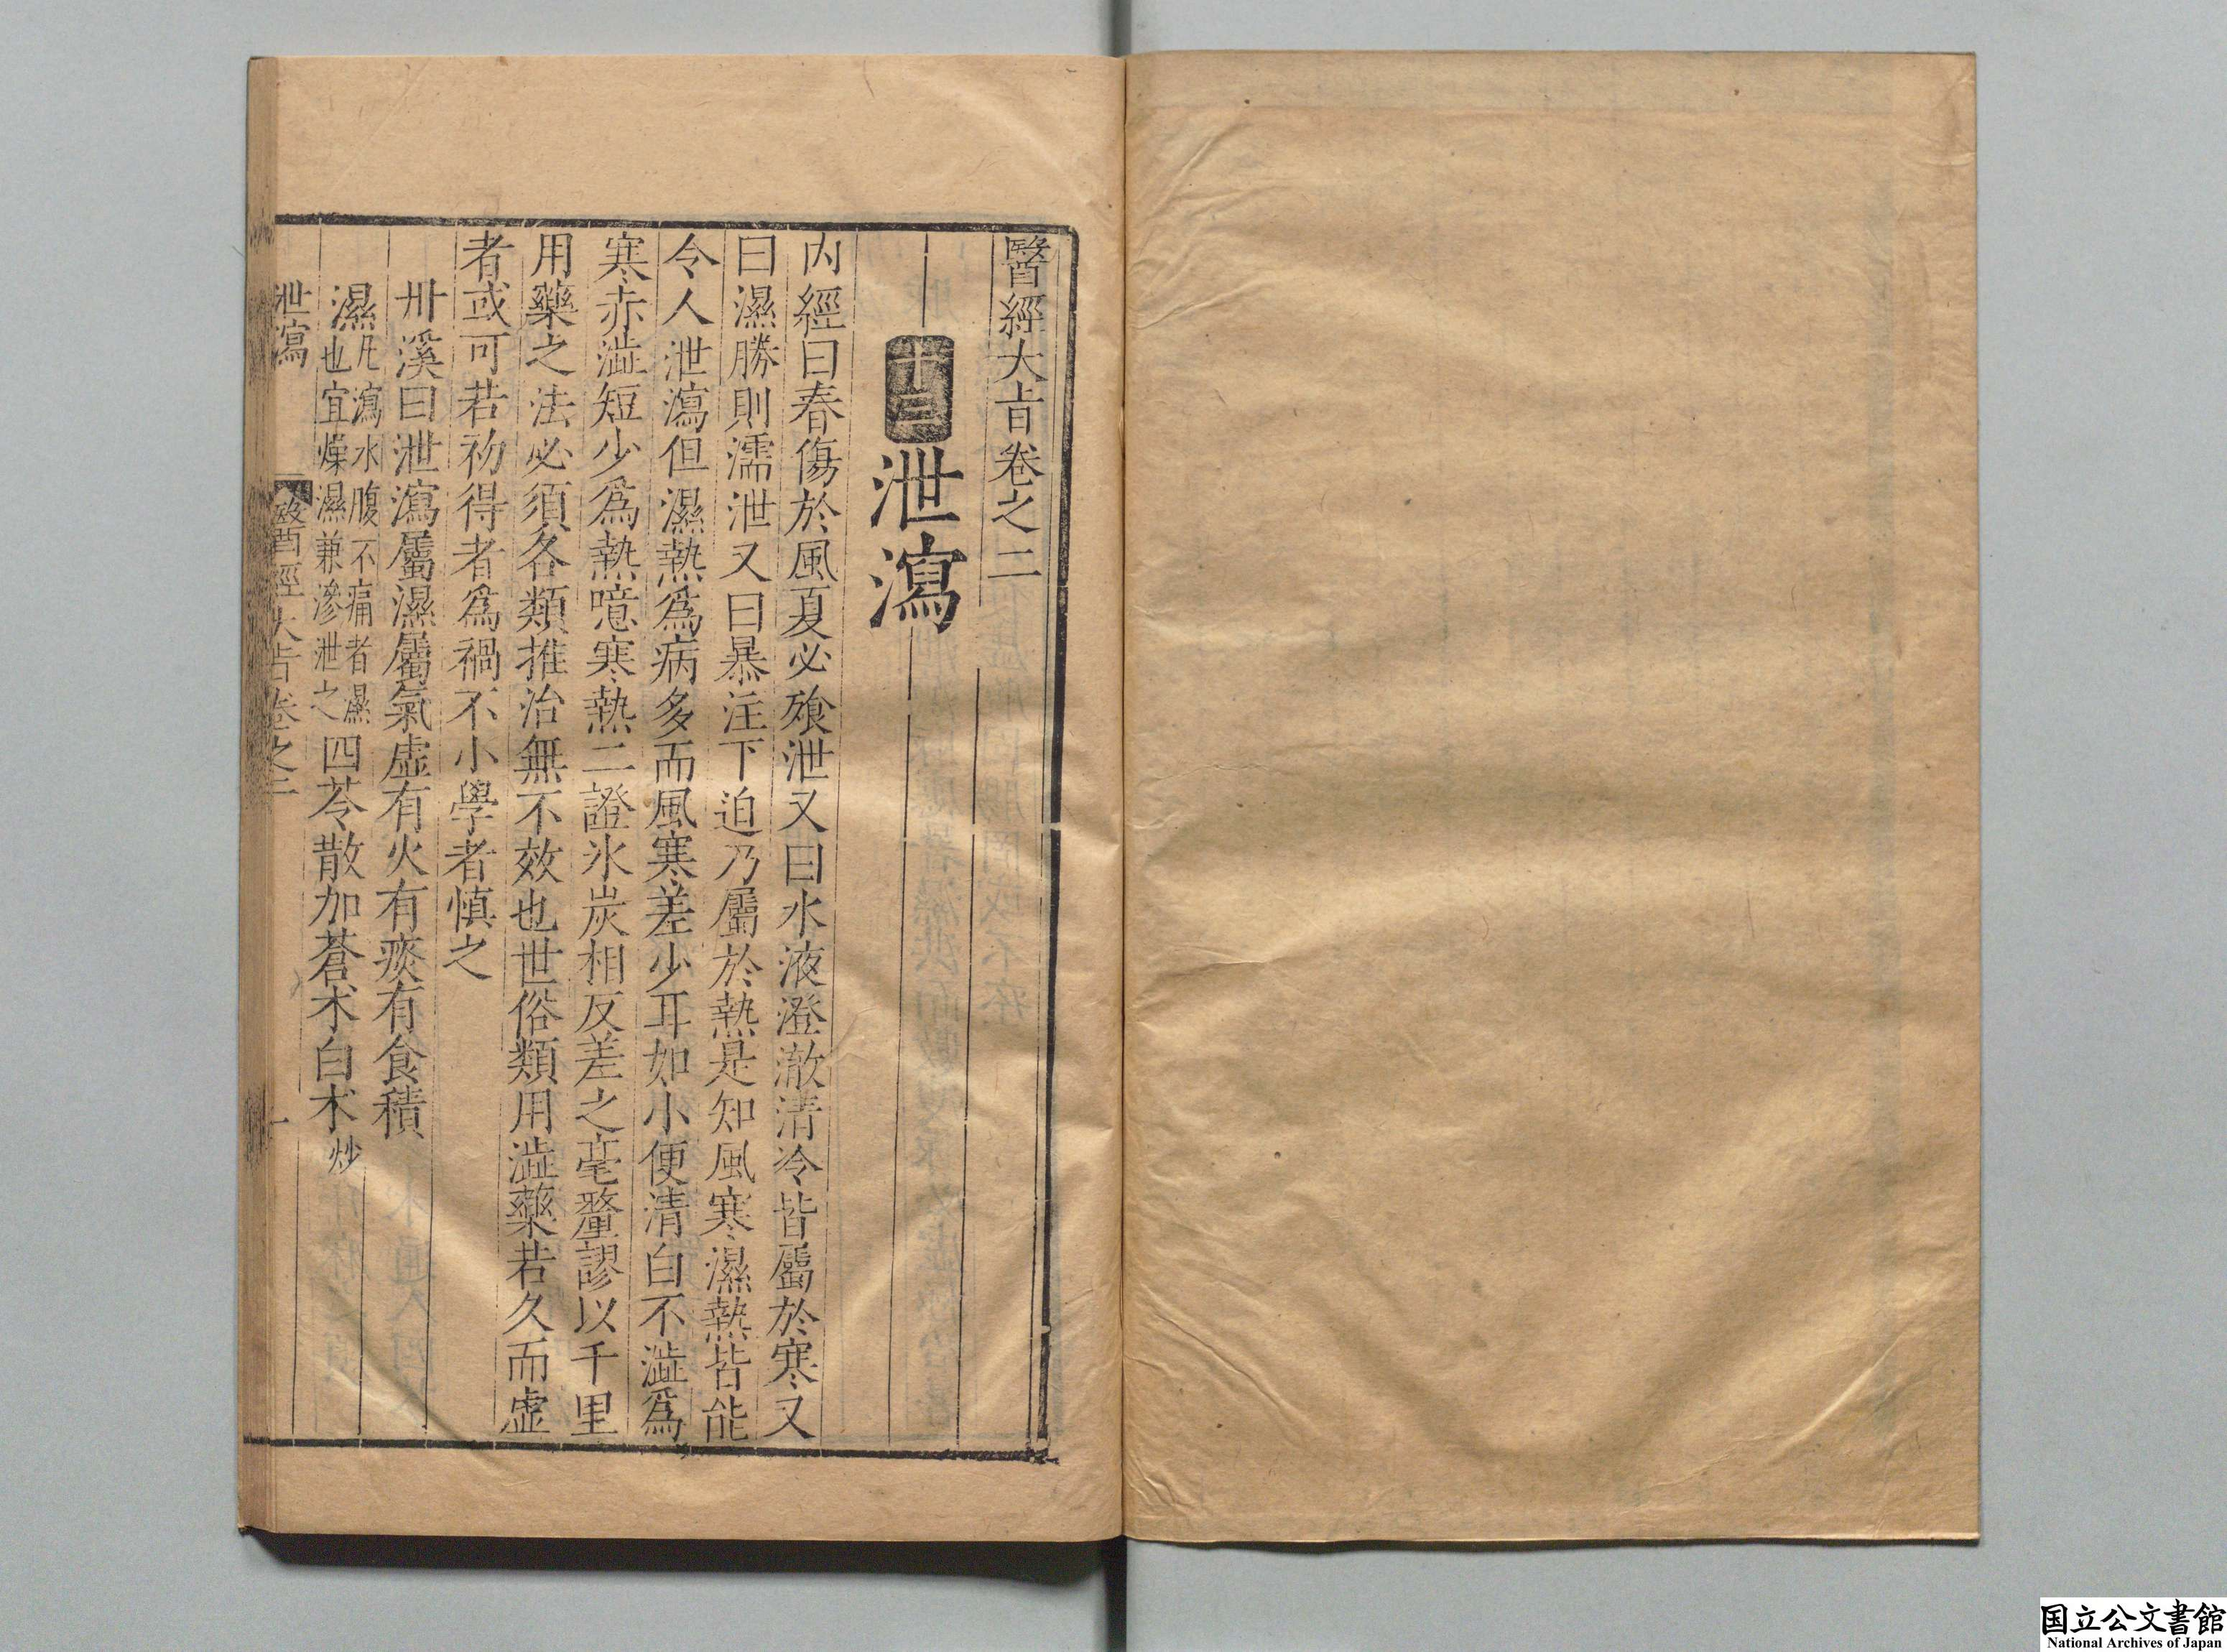 醫經大旨卷之二
十三 泄瀉
內經曰春傷於風夏必飧泄又曰水液澄澈清冷皆屬於寒又
曰濕勝則濡泄又曰暴注下迫乃屬於熱是知風寒濕熱皆能
令人泄瀉但濕熱爲病多而風寒差少耳如小便清白不澁爲
寒赤澁短少爲熱噫寒熱二證氷炭相反差之毫釐謬以千里
用藥之法必須各類推治無不效也世俗類用澁藥若久而虛
者或可若初得者爲禍不小學者慎之
丹溪曰泄瀉屬濕屬氣虛有火有痰有食積
濕凡瀉水腹不痛者濕也宜燥濕兼滲泄之四苓散加蒼朮白朮炒
泄瀉 醫經大旨卷之二 一
国立公文書館
National Archives of Japan